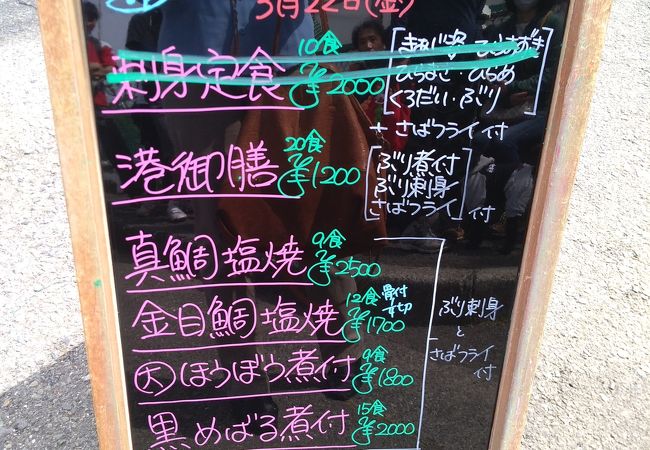 3月22日(金)
刺身定食 10食 ¥2000
くろだい・ぶり
+ さばフライ付
港御膳 20食 ¥1200
ぶり煮付
ぶり刺身
さばフライ 付
真鯛塩焼 9食 ¥2500
金目鯛塩焼 12食 骨付 ¥1700
大 ほうぼう煮付 9食 ¥1800
黒めばる煮付 15食 ¥2000
ぶり刺身
と
さばフライ
付